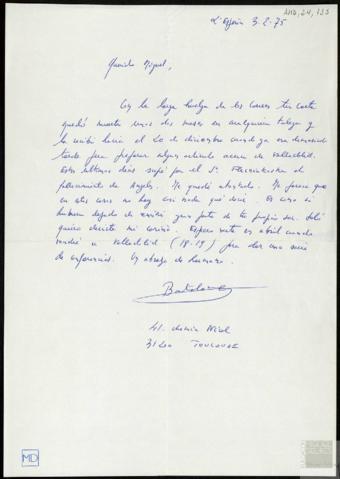 L'Espezia 3-2-75
AMD, 24, 133
Querido Miguel,
Con la larga huelga de los Correos tu carta
quedó muerta unos dos meses en cualquier
y la recibí hacia el 20 de diciembre cuando ya era demasiado
tarde para preparar algún artículo acerca de Valladolid.
Estos últimos días supe por el Sr. el
fallecimiento de Angeles. Me quedé Me parece que
en estos casos no hay casi nada que decir. Es como si
hubiera dejado de existir gran parte de tu propio ser. Sólo
quiero decirte mi cariño. Espero verte en abril cuando
vendré a Valladolid (18-19) para dar una serie
de conferencias. Un abrazo de hermano.
Bartolomé
41. chemin Nicol
31200 TOULOUSE
MD